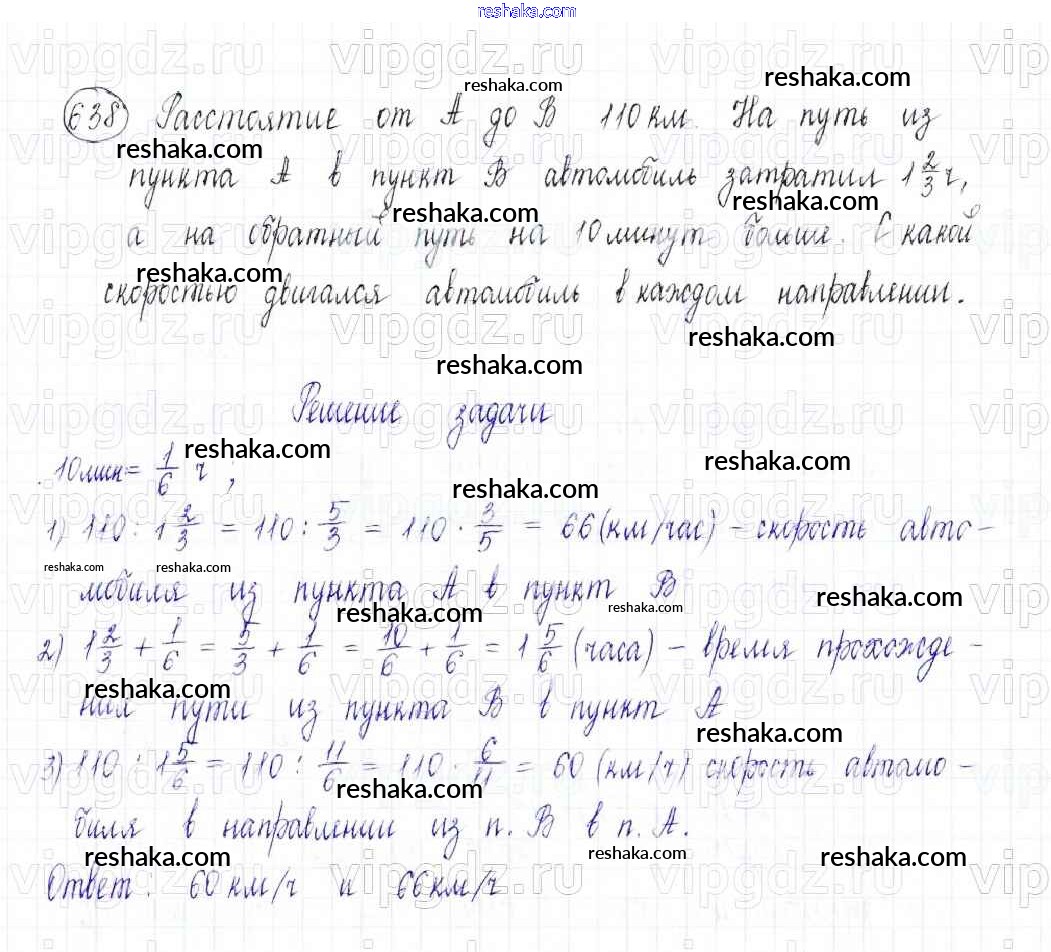 reshaka.com
638 Расстоятие от А до В 110 км. На путь из
пункта А в пункт В автомобиль затратил 1 2/3 ч,
а на обратный путь на 10 минут больше. С какой
скоростью двигался автомобиль в каждом направлении.
Решение задачи
10 мин = 1/6 ч ;
1) 110 : 1 2/3 = 110 : 5/3 = 110 · 3/5 = 66 (км/час) – скорость авто-
мобиля из пункта А в пункт В
2) 1 2/3 + 1/6 = 5/3 + 1/6 = 10/6 + 1/6 = 1 5/6 (часа) – время прохожде-
ния пути из пункта В в пункт А
3) 110 : 1 5/6 = 110 : 11/6 = 110 · 6/11 = 60 (км/ч) скорость автомо-
биля в направлении из п. В в п. А.
Ответ: 60 км/ч и 66 км/ч